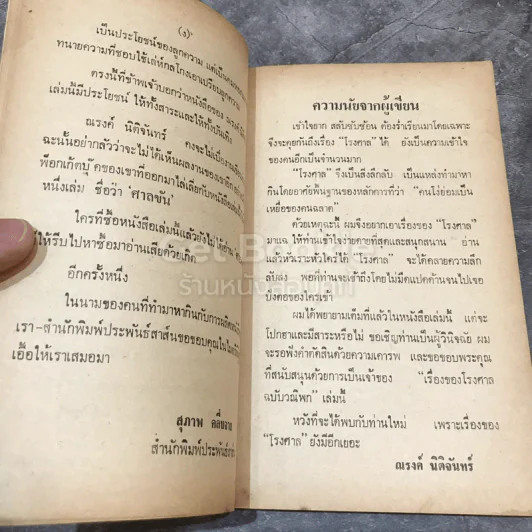 (ง)
เป็นประโยชน์ของลูกความ แต่เป็น
ทนายความที่ชอบใช้เล่ห์กลโกงเอาเปรียบลูกความ
ตรงนี้ที่ข้าพเจ้าบอกว่าหนังสือของ
เล่มนี้มีประโยชน์ ให้ทั้งสาระและให้ทั้งบันเทิง
ณรงค์ นิติจันทร์ คงจะไม่เบื่องาน
ฉะนั้นอย่ากลัวว่าจะไม่ได้เห็นผลงานของเขาอีก
พ็อกเก้ตบุ๊คของเขาที่ออกมาไล่เลี่ยกับหนังสือเล่ม
หนึ่งเล่ม ชื่อว่า 'ศาลขัน'
ใครที่ซื้อหนังสือเล่มนี้แล้วยังไม่ได้อ่าน
ให้รีบไปหาซื้อมาอ่านเสียด้วยเถิด
อีกครั้งหนึ่ง
ในนามของคนที่ทำมาหากินกับการผลิตหนังสือ
เรา-สำนักพิมพ์ประพันธ์สาส์นขอขอบคุณในไมตรี
เอื้อให้เราเสมอมา
สุภาพ คลี่ขจาย
สำนักพิมพ์ประพันธ์สาส์น
ความนัยจากผู้เขียน
เข้าใจยาก สลับซับซ้อน ต้องร่ำเรียนมาโดยเฉพาะ
จึงจะคุยกันถึงเรื่อง "โรงศาล" ได้ ยังเป็นความเข้าใจ
ของคนอีกเป็นจำนวนมาก
"โรงศาล" จึงเป็นสิ่งลึกลับ เป็นแหล่งทำมาหา
กินโดยอาศัยพื้นฐานของหลักการที่ว่า "คนโง่ย่อมเป็น
เหยื่อของคนฉลาด"
ด้วยเหตุฉะนี้ ผมจึงอยากเอาเรื่องของ "โรงศาล"
มาแฉ ให้ท่านเข้าใจง่ายดายที่สุดและสนุกสนาน อ่าน
แล้วหัวเราะหัวใคร่ได้ "โรงศาล" จะได้คลายความลึก
ลับลง พอที่ท่านจะเข้าถึงโดยไม่มีแปดด้านจนไปเจอ
บังคอยของใครเข้า
ผมได้พยายามเต็มที่แล้วในหนังสือเล่มนี้ แต่จะ
โปกฮาและมีสาระหรือไม่ ขอเชิญท่านเป็นผู้วินิจฉัย ผม
จะรอฟังคำตัดสินด้วยความเคารพ และขอขอบพระคุณ
ที่สนับสนุนด้วยการเป็นเจ้าของ "เรื่องของโรงศาล
ฉบับวณิพก" เล่มนี้
หวังที่จะได้พบกับท่านใหม่ เพราะเรื่องของ
"โรงศาล" ยังมีอีกเยอะ
ณรงค์ นิติจันทร์